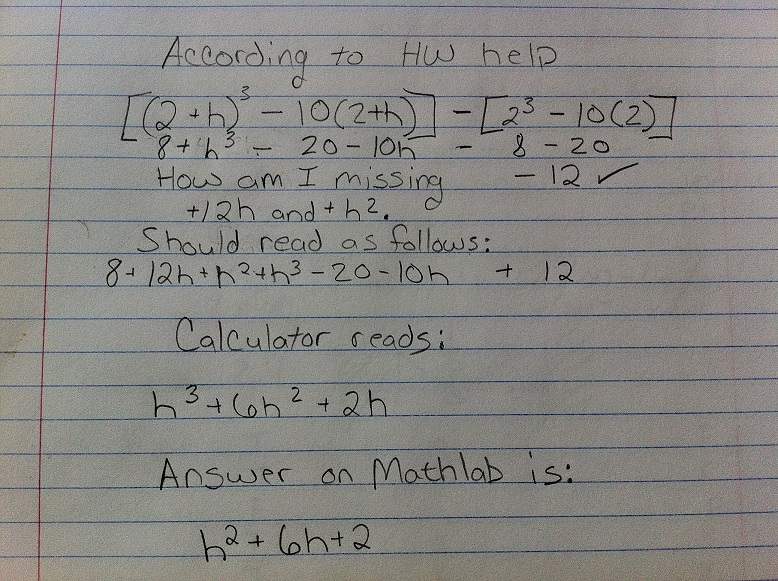 According to HW help
[(2+h)³ - 10(2+h)] - [2³ - 10(2)]
8 + h³ - 20 - 10h - 8 - 20
How am I missing - 12 ✓
+12h and + h².
Should read as follows:
8 + 12h + h² + h³ - 20 - 10h + 12
Calculator reads:
h³ + 6h² + 2h
Answer on Mathlab is:
h² + 6h + 2